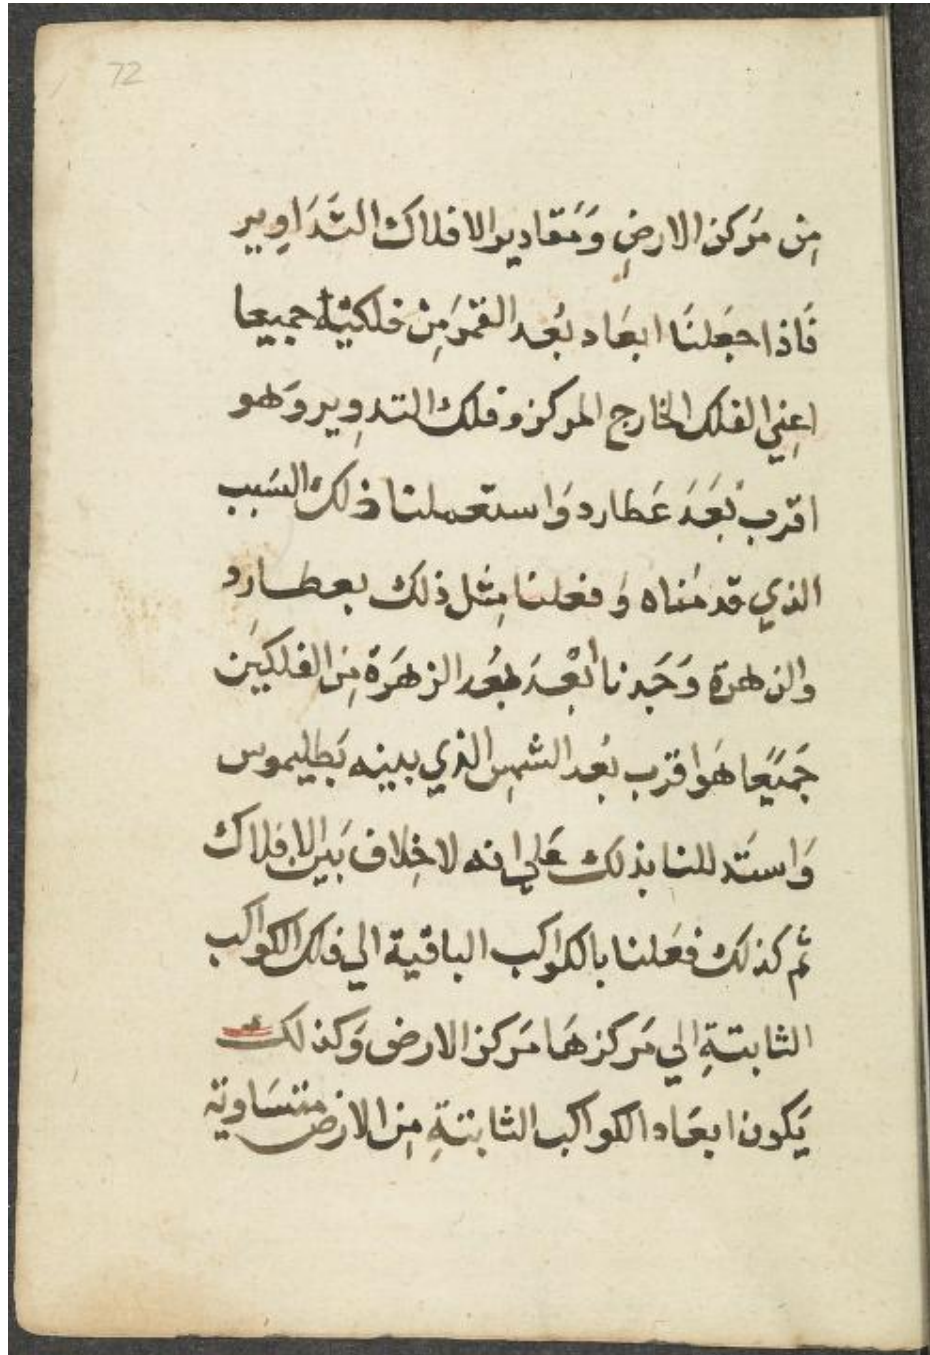 72
مِن مَركز الارضِ وَمَقادير الافلاك التَدَاوِير
فَاذا جعَلنَا ابعَاد بُعد القمَر مِن فلكيَّهُ جميعا
اعِني الفلك الخارج المركز وفلك التدوِير وَهو
اقرب بُعَدَ عَطارد وَاستعملنا ذلك السَبب
الذي قدمَناه وَفعلنا مِثل ذلك بعطارد
والزهرة وَجَدنا ابْعَدَ بُعُد الزهَرَة مِن الفلكيَن
جَميًعا هَوا قرب بُعد الشمِس الذي بينه بَطليموس
وَاستَدللنا بذلك عَلي انه لا خِلاف بَين الافلاك
ثم كذلك فعَلنا بالكواكب الباقية الي فلك الكواكب
الثابتةِ الي مَركزهَا مَركز الارض وَكذلك
يَكون ابعَاد الكواكب الثابتةِ مِن الارَض متسَاوية